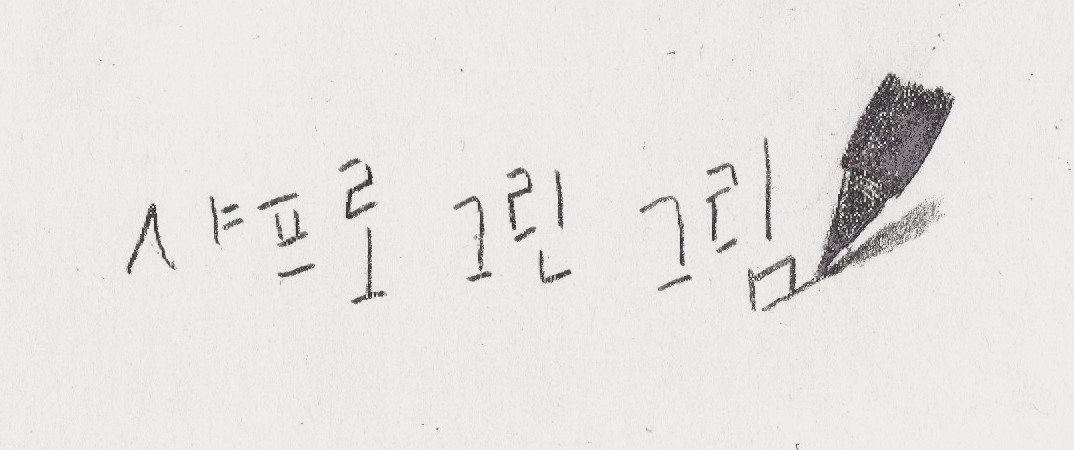 샤프로 그린 그림